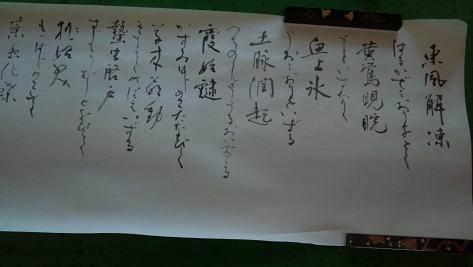 東風解凍
はるかぜこおりをとく
黄鶯睍睆
魚上氷
うおこおりをいずる
土脉潤起
つちのしょううるおいおこる
霞始靆
かすみはじめてたなびく
草木萌動
そうもくめばえいずる
蟄虫啓戸
すごもりむしとをひらく
桃始笑
ももはじめてさく
菜虫化蝶